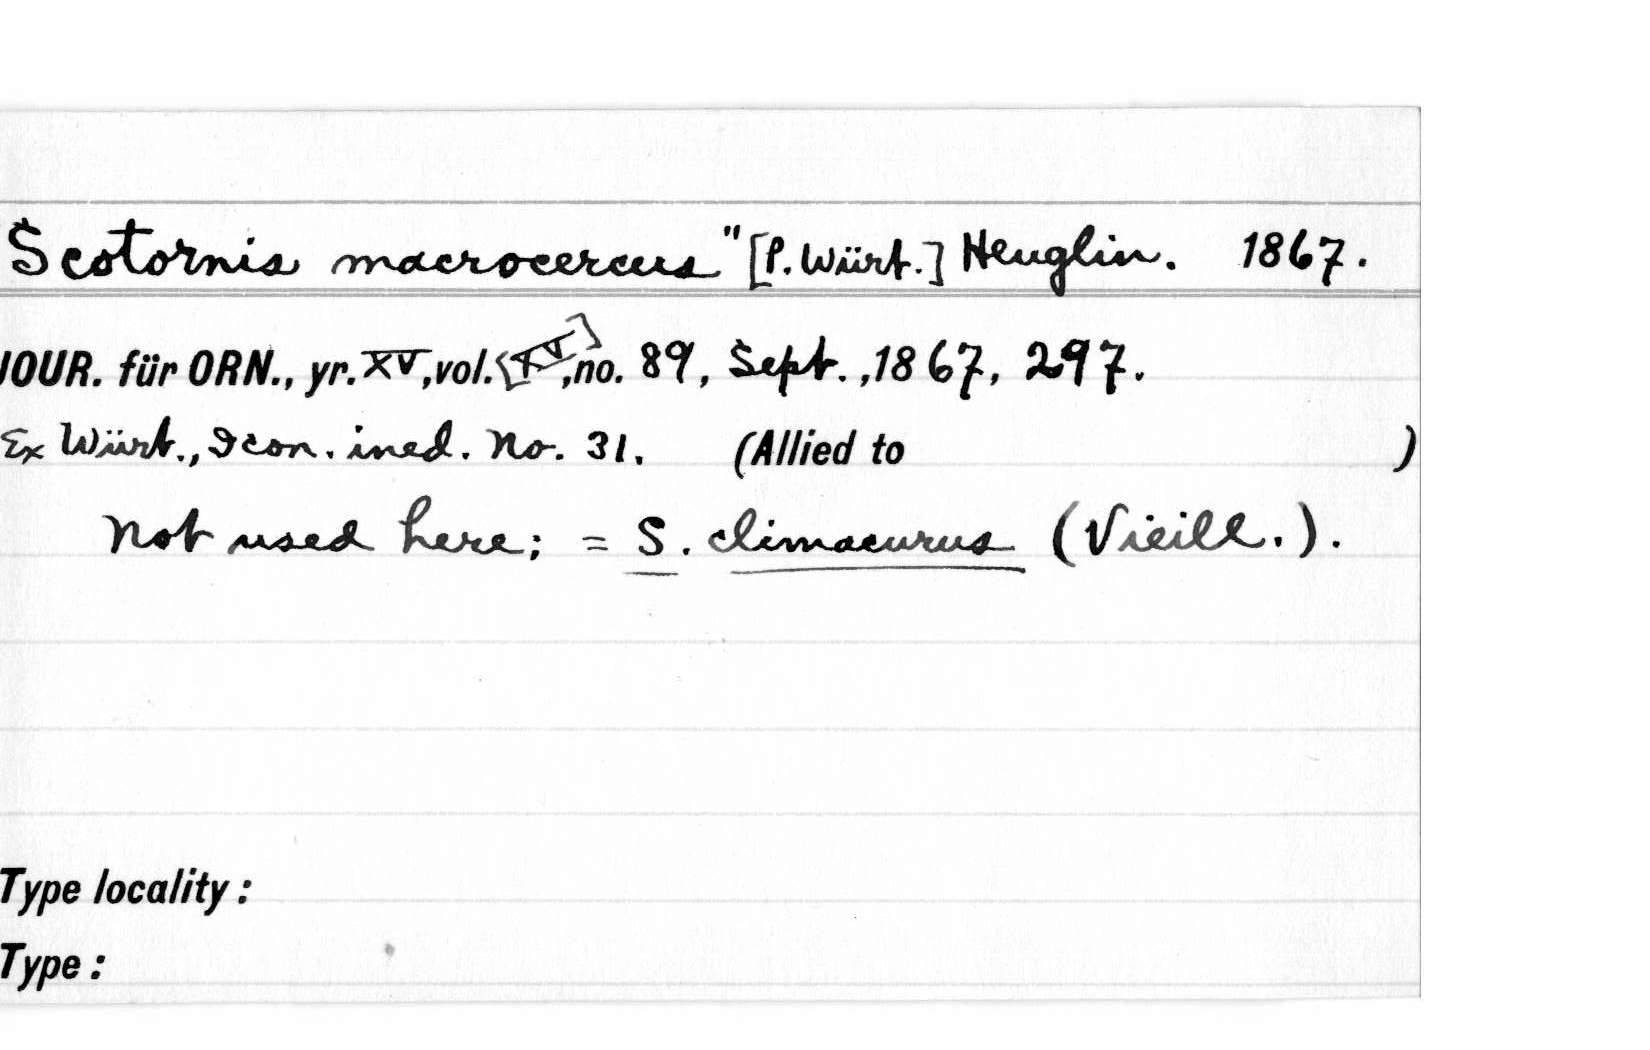 Scotornis macrocercus" [P. Würt.] Heuglin. 1867.
JOUR. für ORN., yr. XV, vol. [XV], no. 89, Sept., 1867, 297.
Ex Würt., Icon. ined. No. 31. (Allied to )
Not used here; = S. climacurus (Vieill.).
Type locality:
Type: